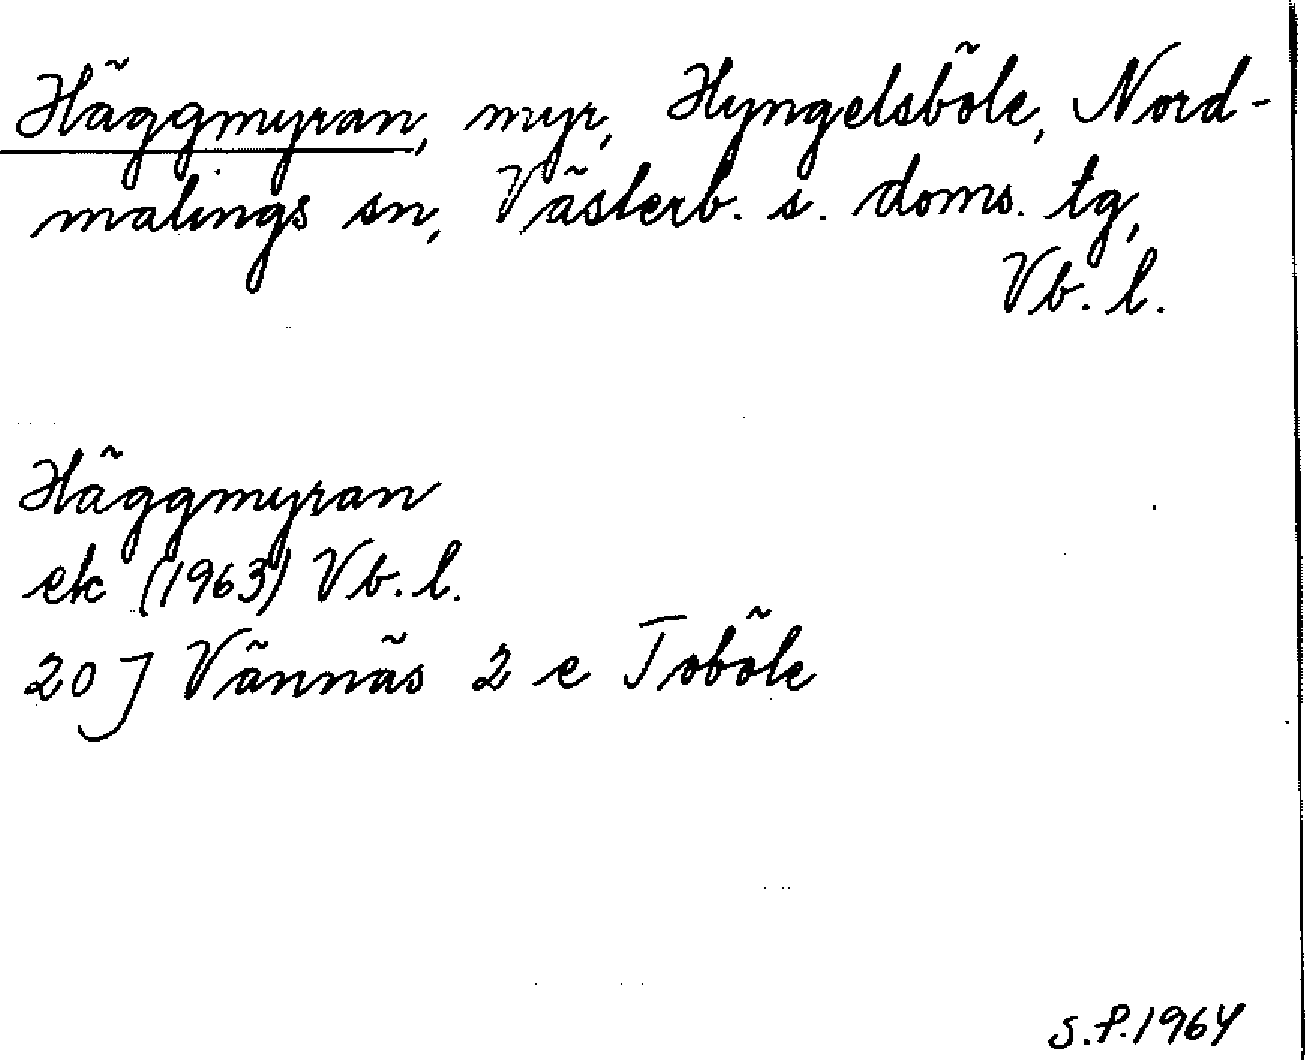 Häggmyran, myr, Hyngelsböle, Nord-
malings sn, Västerb. s. doms. tg,
Vb. l.
Häggmyran
ek (1963) Vb. l.
20 J Vännäs 2 e Toböle
S.P. 1964